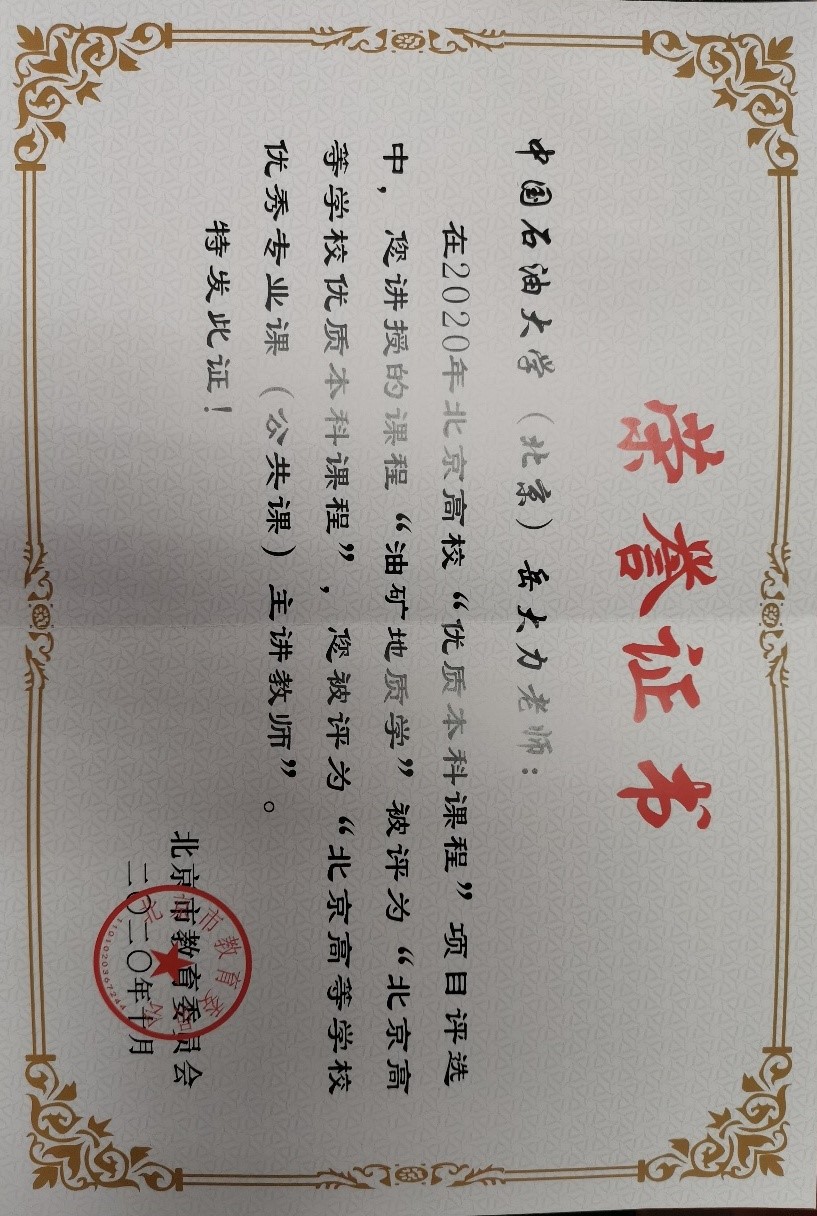 荣誉证书
中国石油大学（北京）岳大力老师：
在2020年北京高校“优质本科课程”项目评选
中，您讲授的课程“油矿地质学”被评为“北京高
等学校优质本科课程”，您被评为“北京高等学校
优秀专业课（公共课）主讲教师”。
特发此证！
北京市教育委员会
二〇二〇年十月